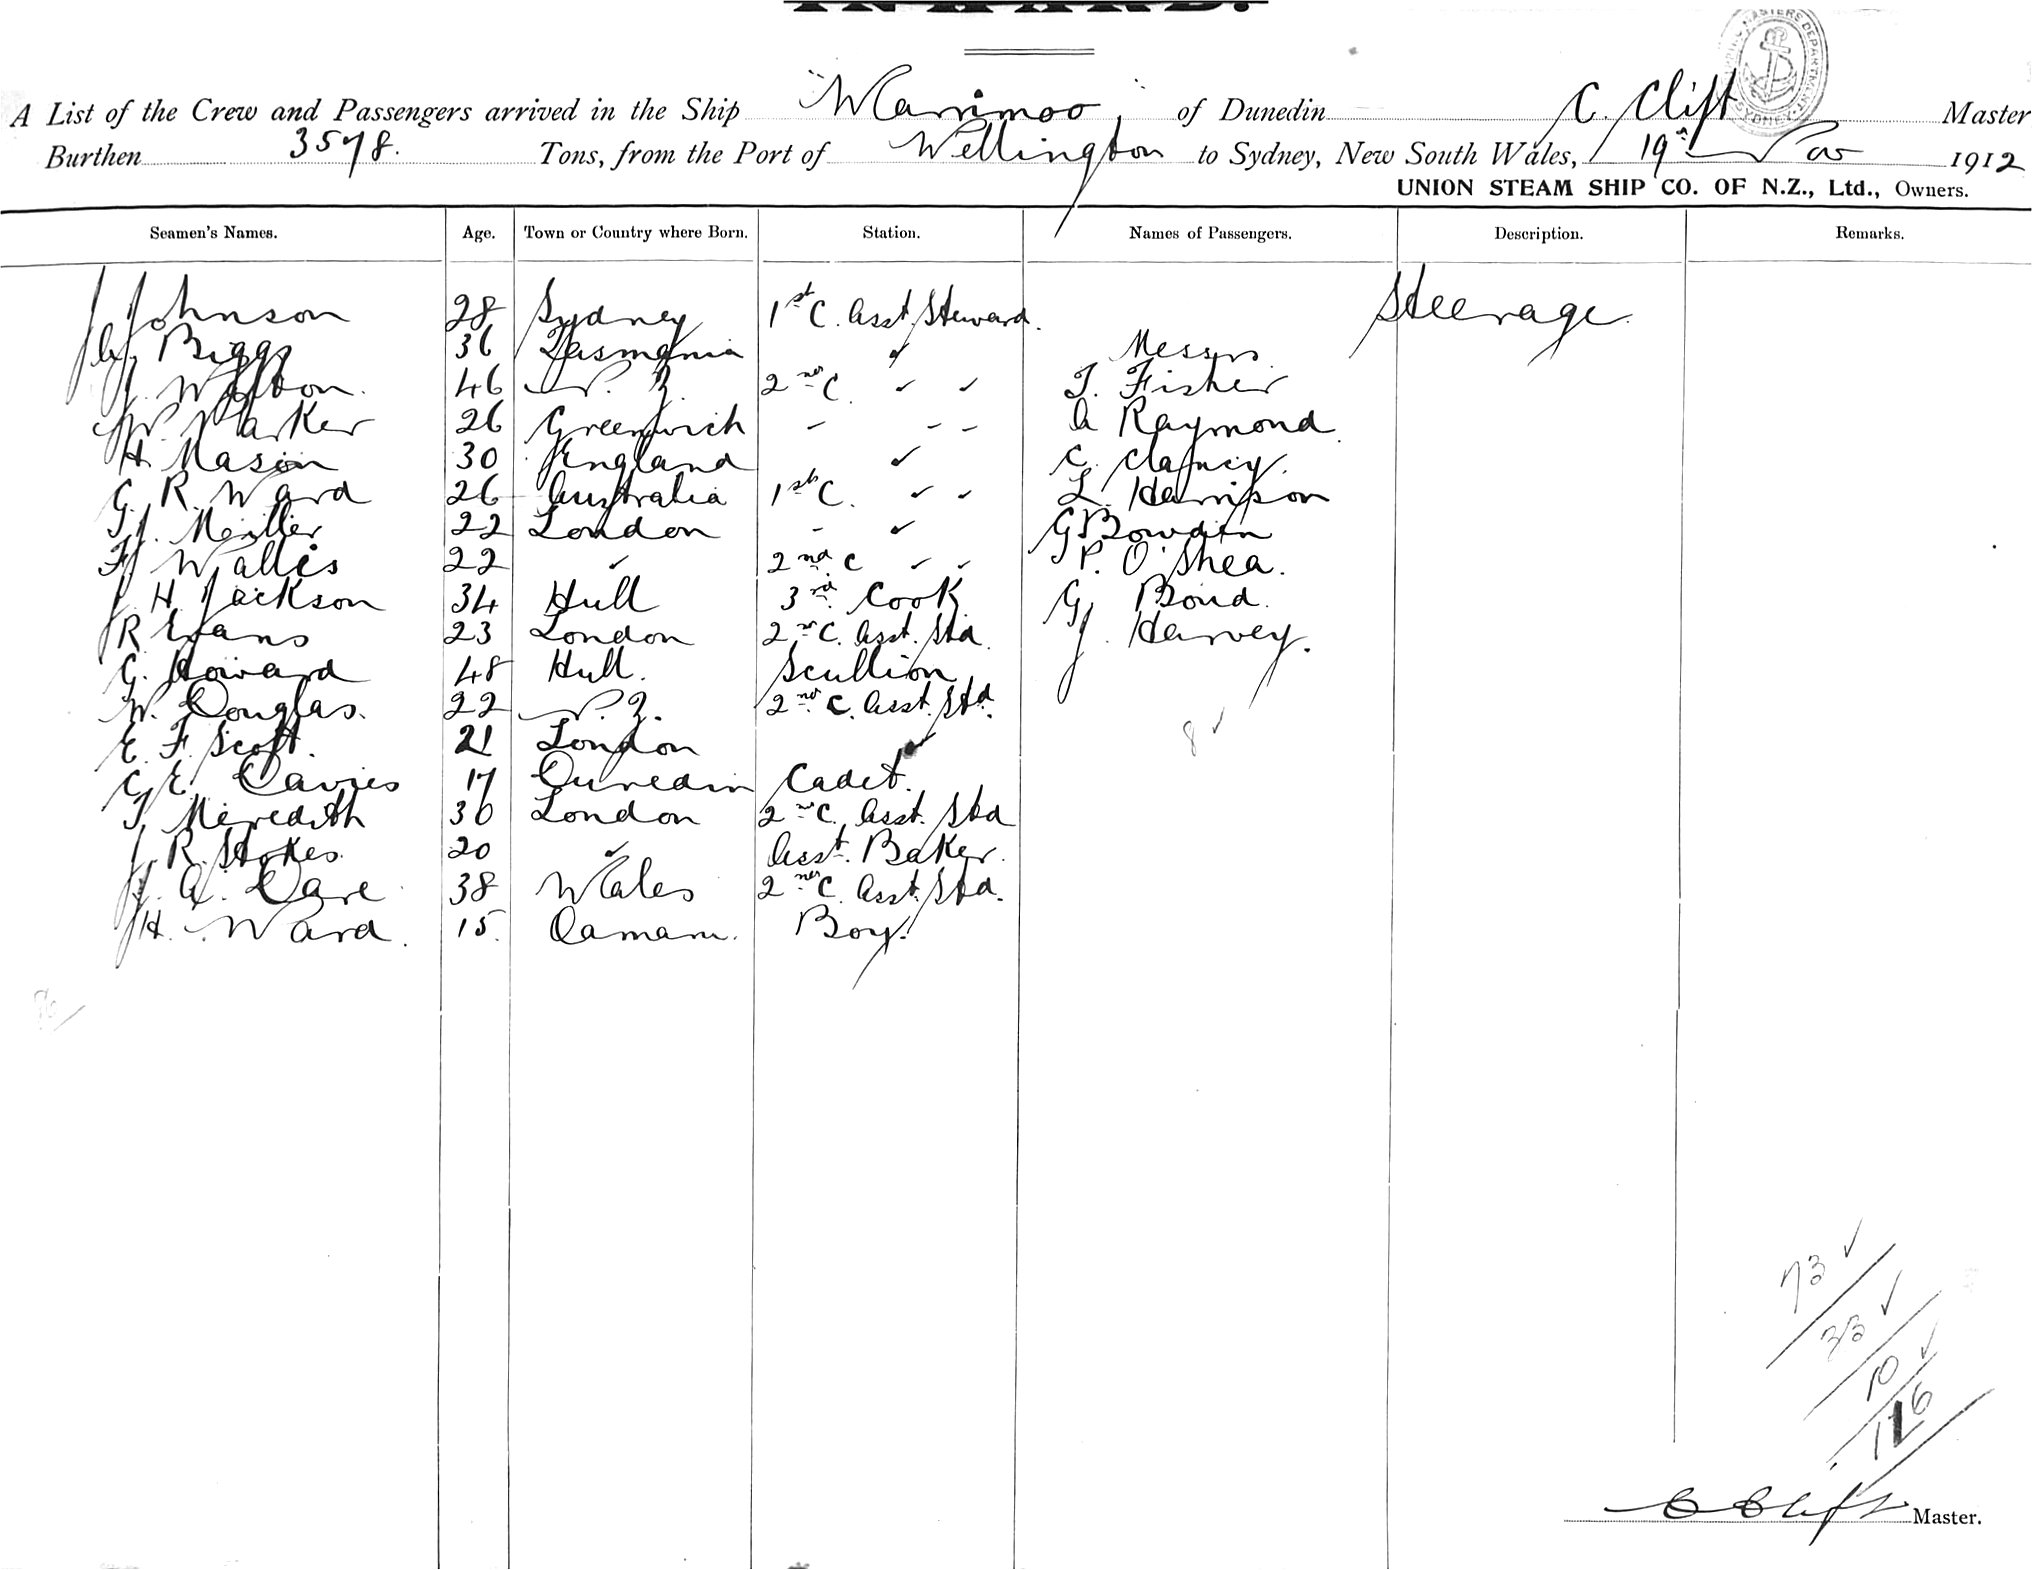 INWARD.
A List of the Crew and Passengers arrived in the Ship "Warrimoo" of Dunedin C. Clift Master
Burthen 3578. Tons, from the Port of Wellington to Sydney, New South Wales, 19th Nov 1912
UNION STEAM SHIP CO. OF N.Z., Ltd., Owners.
Seamen's Names. Age. Town or Country where Born. Station. Names of Passengers. Description. Remarks.
J Johnson 28 Sydney 1st C. Asst. Steward. Steerage.
Biggs 36 Tasmania ✓ Messrs
J. Walton. 46 N.Z. 2nd C. ✓ ✓ T. Fisher
W. Parker 26 Greenwich - - - A Raymond
H. Mason 30 England ✓ C. Clancy.
G. R. Ward 26 Australia 1st C. ✓ ✓ L. Harrison
Meiller 22 London - ✓ G Bowden
F Wallis 22 ✓ 2nd C ✓ ✓ P. O'Shea.
J. H. Jackson 34 Hull 3rd Cook G. Bond.
R Evans 23 London 2nd C. Asst. Std. J. Harvey.
G. Howard 48 Hull. Scullion
W. Douglas. 22 N.Z. 2nd C. Asst. Std.
E. F. Scott. 21 London ✓ 8 ✓
G E. Davies 17 Dunedin Cadet.
T Meredith 30 London 2nd C. Asst. Std
J. R. Stokes. 20 ✓ Asst. Baker.
J. A. Dare 38 Wales 2nd C. Asst. Std.
H. Ward. 15. Oamaru. Boy.
73 ✓
33 ✓
10 ✓
116
C Clift Master.